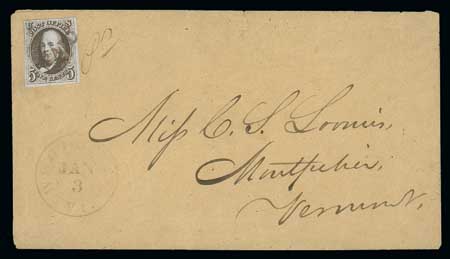 POST OFFICE
FIVE CENTS
5 5
Miss C. S. Loomis,
Montpelier,
Vermont,
JAN
3